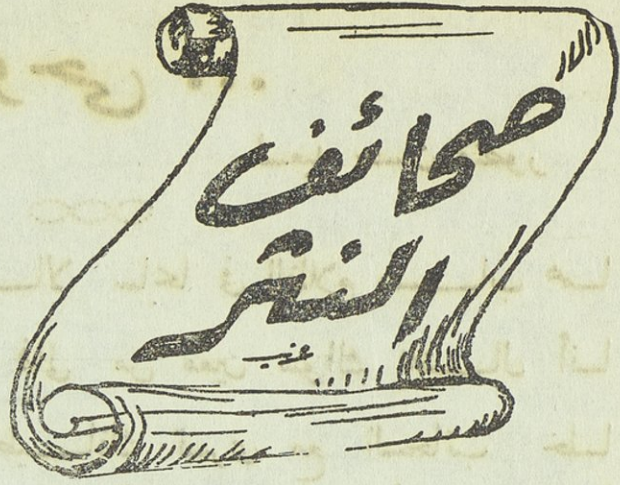 صحائف
النثر